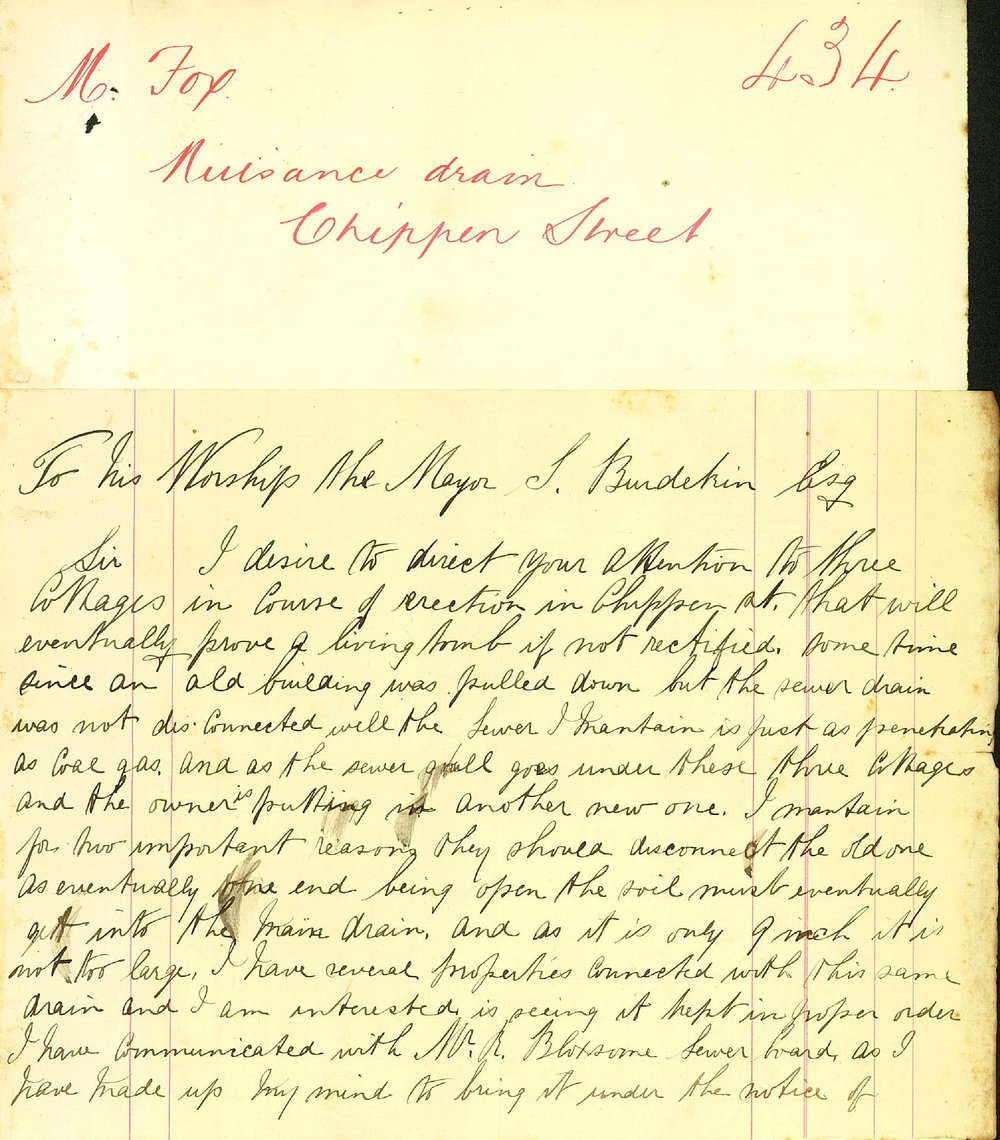 M. Fox. 434.
Nuisance drain
Chippen Street
To his Worship the Mayor S. Burdekin Esq
Sir I desire to direct your attention to three
Cottages in course of erection in Chippen st. that will
eventually prove a living tomb if not rectified. some time
since an old building was pulled down but the sewer drain
was not dis-connected well the Sewer I mantain is just as penetrating
as Coal gas. and as the sewer still goes under these three Cottages
and the owner is putting in another new one. I mantain
for two important reasons they should disconnect the old one
as eventually one end being open the soil must eventually
get into the main drain. and as it is only 9 inch it is
not too large. I have several properties connected with this same
drain and I am interested is seeing it kept in proper order
I have communicated with Mr. R. Bloxsome Sewer board, as I
have made up my mind to bring it under the notice of